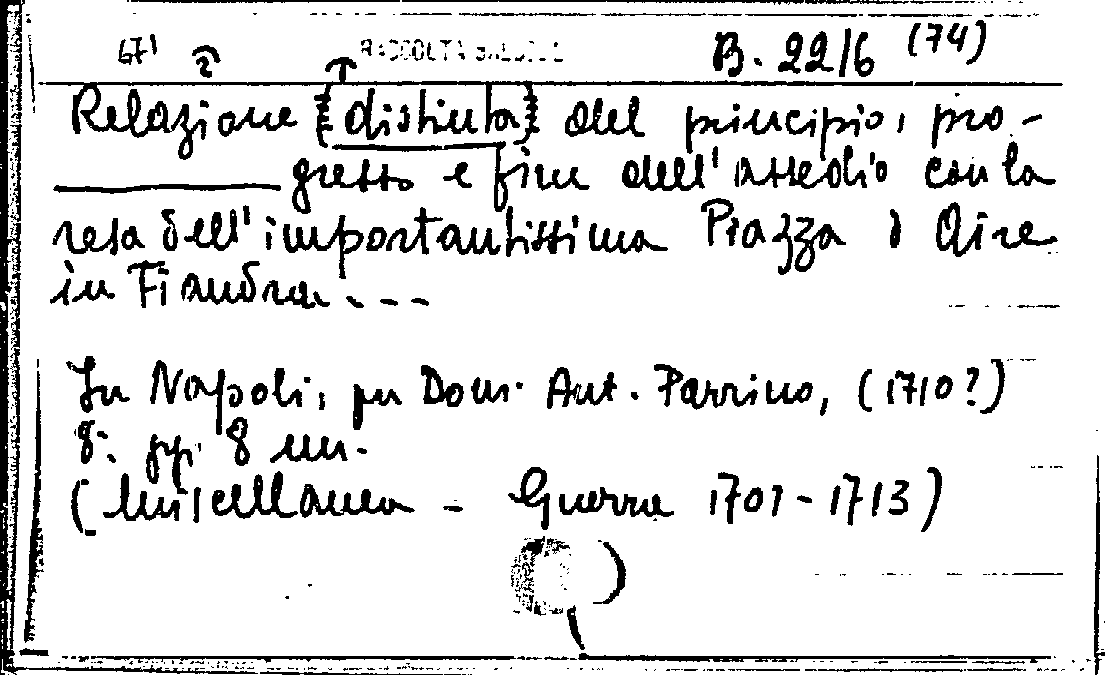 671 2 RACCOLTA B. 22/6 (74)
Relazione (distinta) del principio, pro-
gresso e fine dell'assedio con la
resa dell'importantissima Piazza d Aire
in Fiandra - - -
In Napoli, per Dom. Ant. Parrino, (1710?)
8: pp. 8 nn.
(Miscellanea - Guerra 1701-1713)